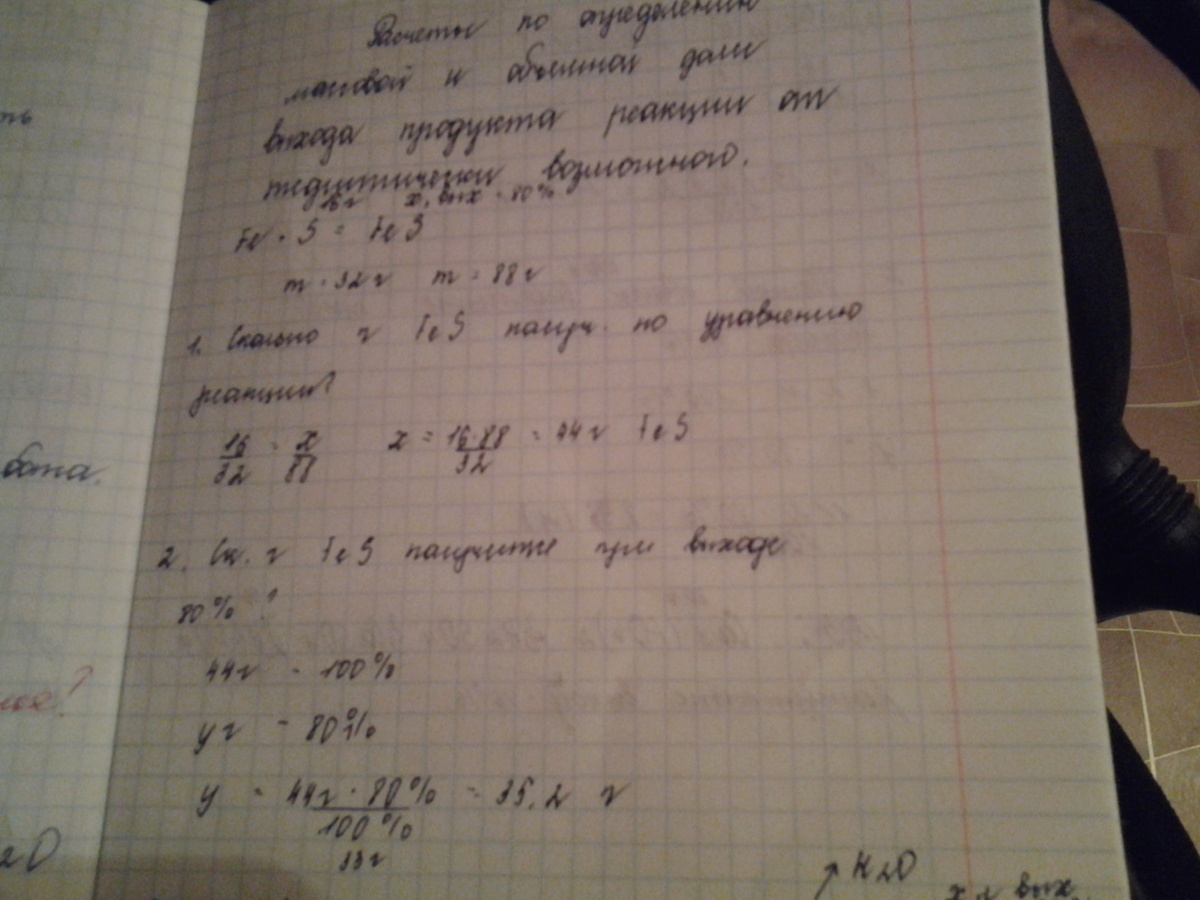 ть
Расчеты по определению
массовой и объемной доли
выхода продукта реакции от
теоритически возможного.
16 г х, вых = 80%
Fe + S = FeS
m = 32 г m = 88 г
1. Сколько г FeS получ. по уравнению
реакции?
16/32 = x/88 x = 16·88/32 = 44 г FeS
бота.
2. Ск. г FeS получится при выходе
80% ?
44 г - 100%
у г - 80%
у = 44г · 80%/100% = 35,2 г
33 г
2O
↗ H2O х г вых